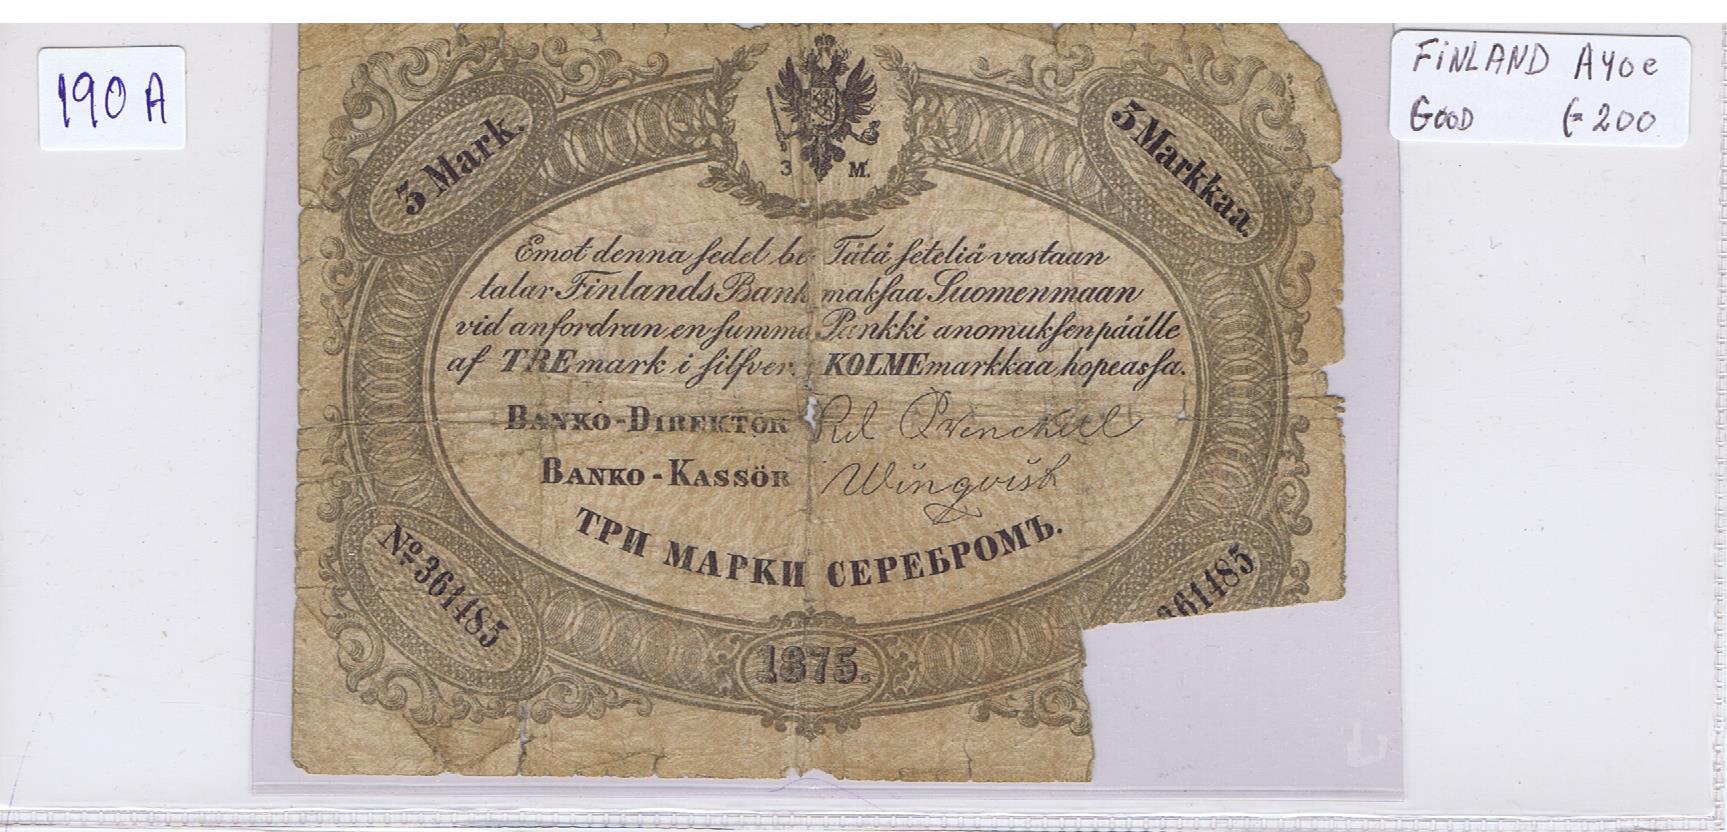 190 A
FINLAND A40e
GOOD €200
3 Mark.
3 Markkaa.
3 M.
Emot denna sedel be-
talar Finlands Bank
vid anfordran en summa
af TRE mark i silfver.
Tätä seteliä vastaan
maksaa Suomenmaan
Pankki anomuksen päälle
KOLME markkaa hopeassa.
BANKO-DIREKTÖR
BANKO-KASSÖR Wingvist
ТРИ МАРКИ СЕРЕБРОМЪ.
No. 361485
361485
1875.